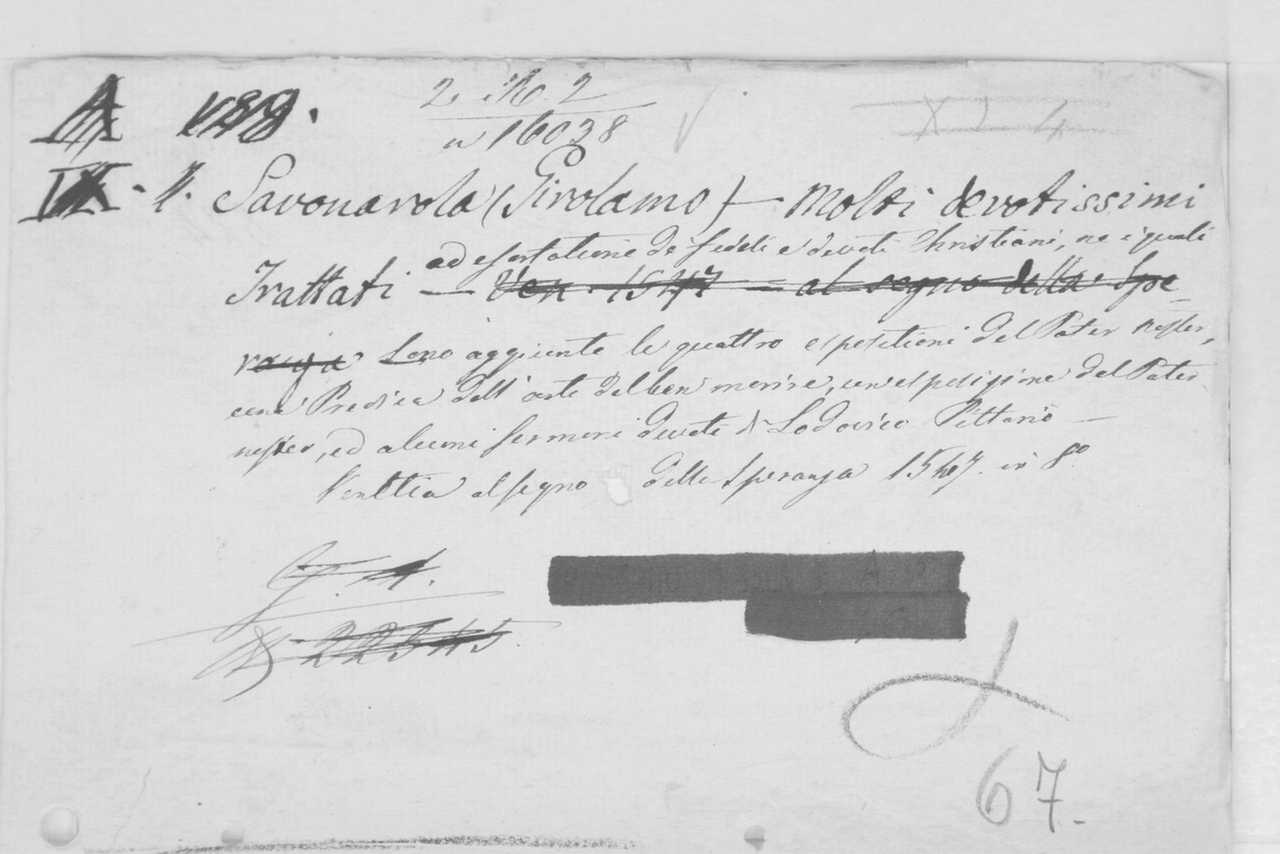 A 199.
2. M. 2
a 16028
X I 4
IX. 7. Savonarola (Girolamo) — Molti devotissimi
ad esortatione de fedeli e devoti Christiani, ne i quali
Trattati — Ven 1547 — al segno della Spe=
ranza Sono aggiunte le quattro espositioni del Pater noster,
una Predica dell'arte del ben morire, un espositione del Pater
noster, ed alcuni sermoni devoti di Lodovico Pittorio —
Venetia al segno della Speranza 1547. in 8º
G. 4.
22545.
67.